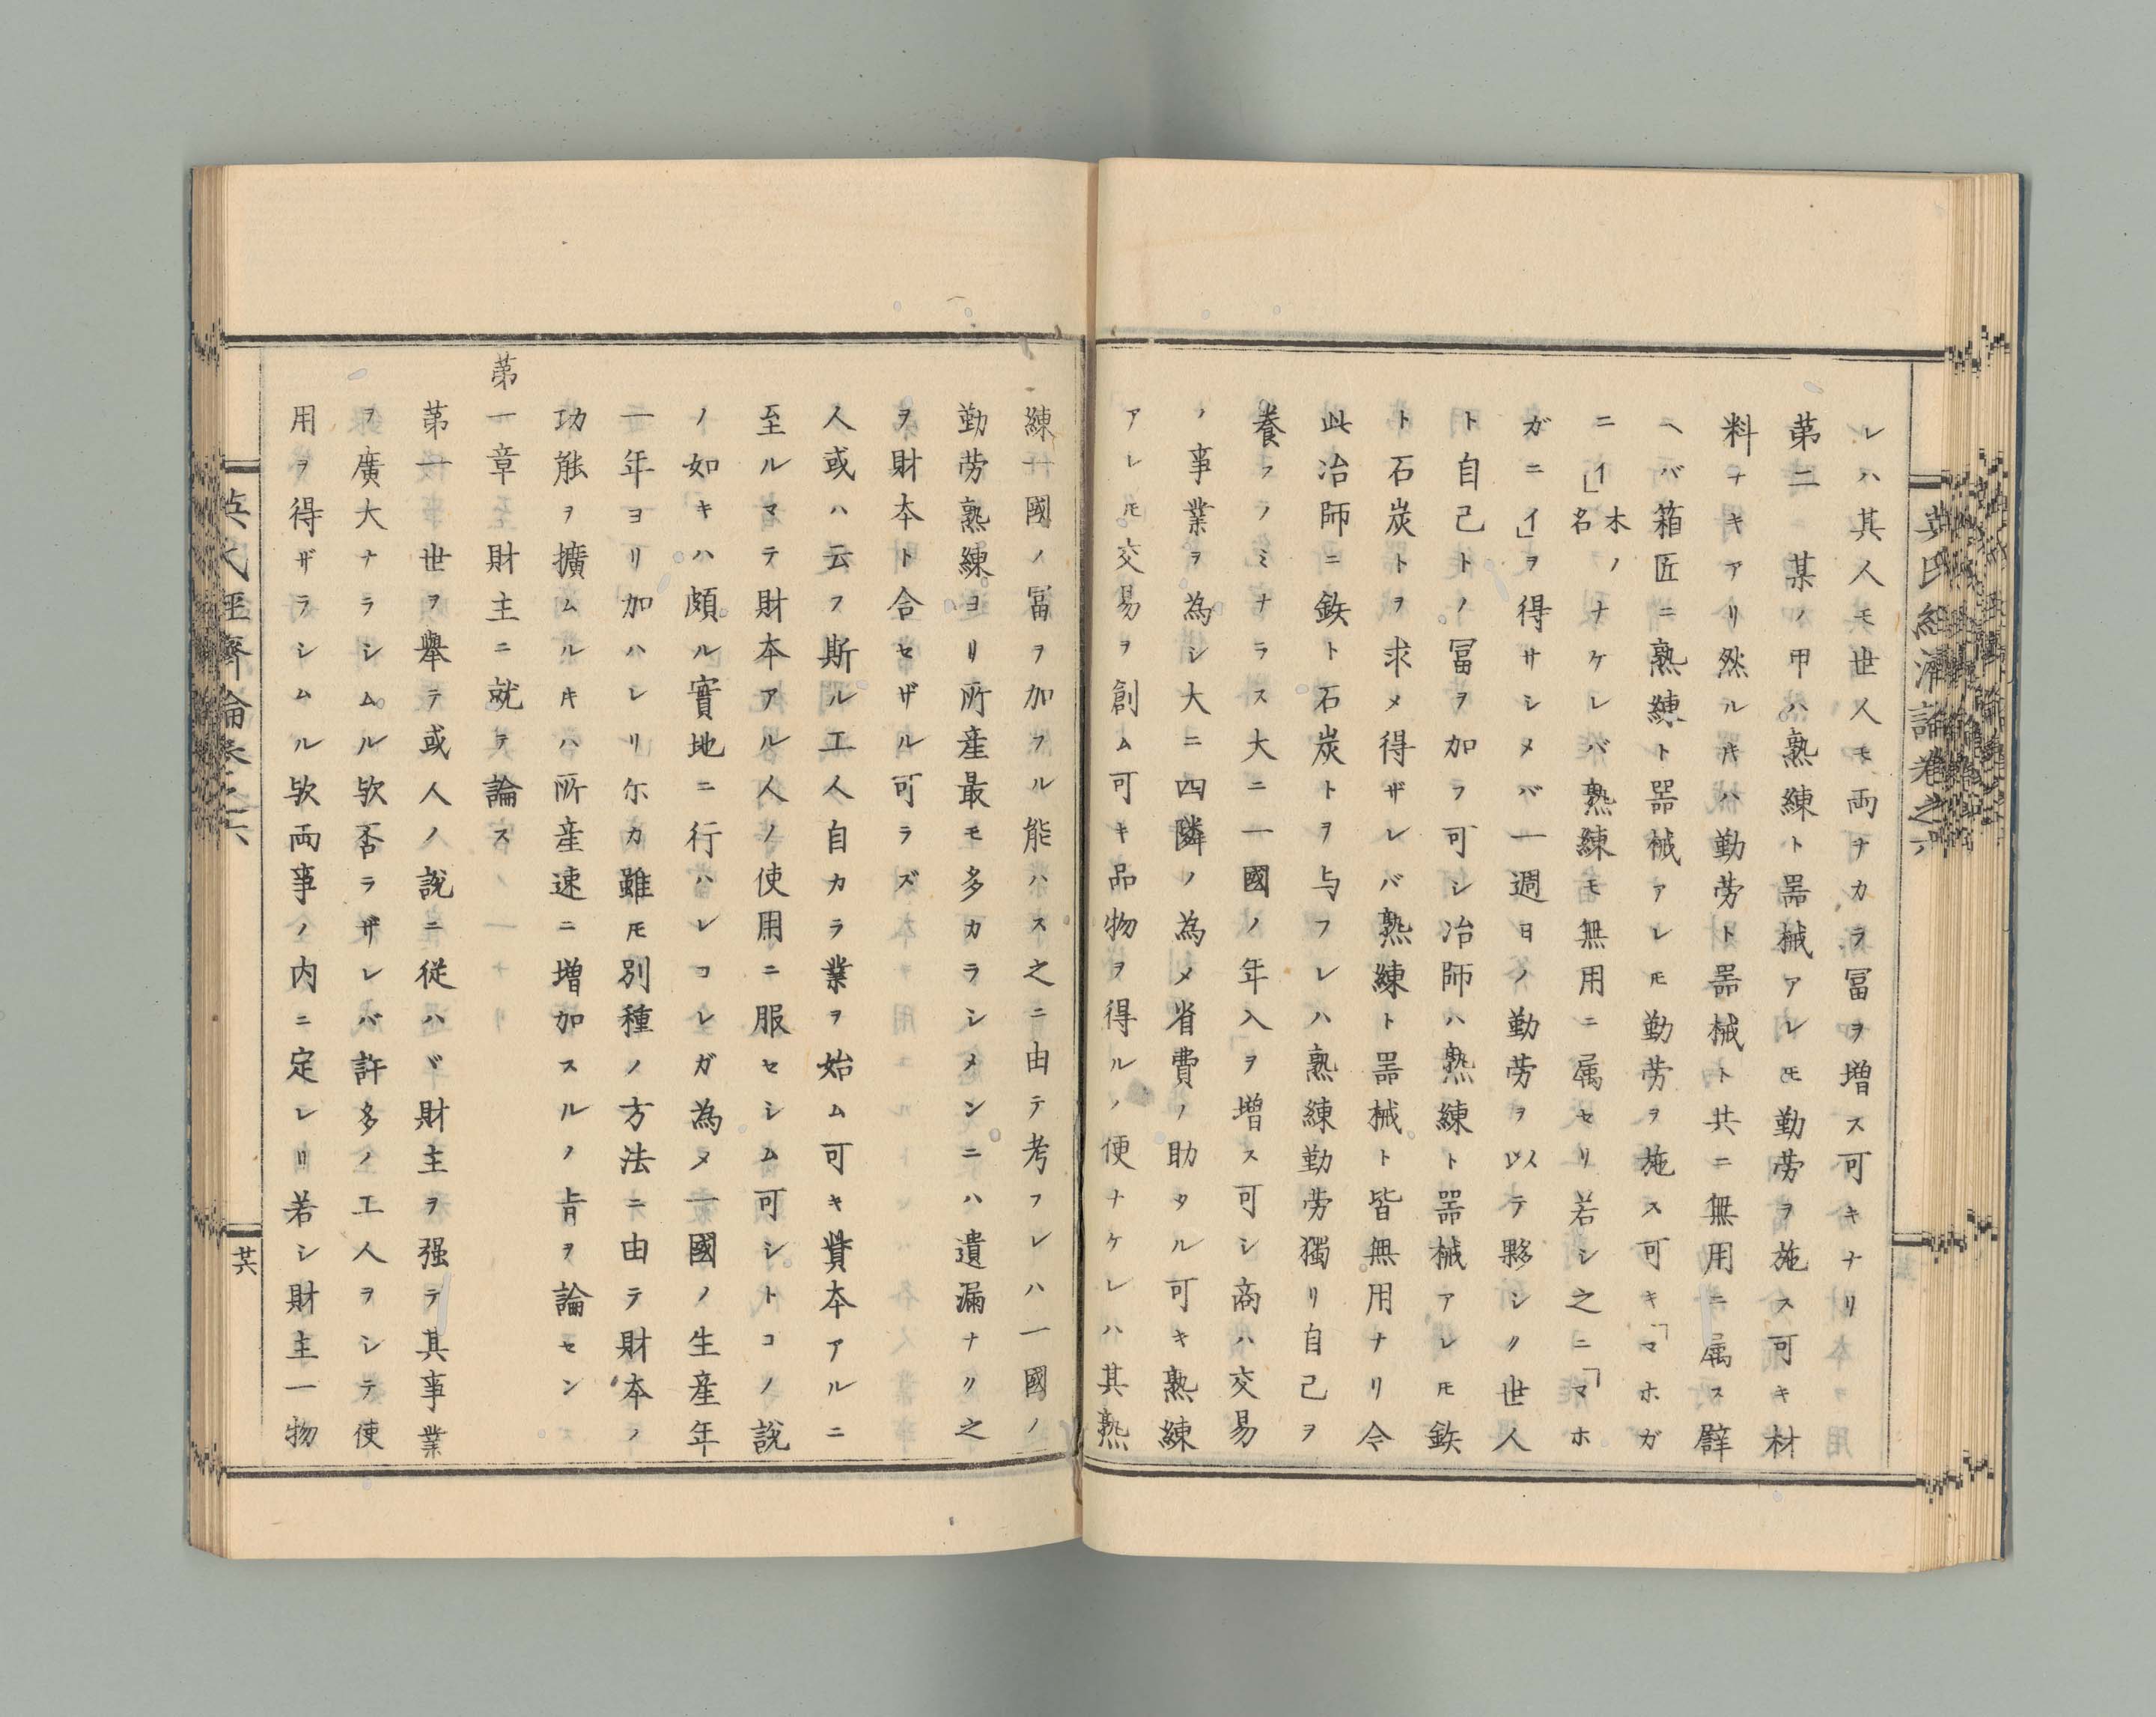 英氏経濟論卷之六
レハ其人モ世人モ両ナカラ冨ヲ増ス可キナリ
苐二 某ノ甲ハ熟練ト噐械アレㇳモ勤労ヲ施ス可キ材
料ナキアリ然ルㇳキハ勤労ト噐械ト共ニ無用ニ属ス譬
ヘバ箱匠ニ熟練ト噐械アレㇳモ勤労ヲ施ス可キ「マホガ
ニイ」木ノ名ナケレバ熟練モ無用ニ属セリ若シ之ニ「マホ
ガニイ」ヲ得サシメバ一週日ノ勤労ヲ以テ夥シク世人
ト自己トノ冨ヲ加ラ可シ冶師ハ熟練ト噐械アレㇳモ鉃
ト石炭トヲ求メ得ザレバ熟練ト噐械ト皆無用ナリ令
此冶師ニ鉃ト石炭トヲ与フレハ熟練勤労獨リ自己ヲ
養フノミナラス大ニ一國ノ年入ヲ増ス可シ商ハ交易
ノ事業ヲ為シ大ニ四隣ノ為メ省費ノ助タル可キ熟練
アレㇳモ交易ヲ創ム可キ品物ヲ得ルノ便ナケレハ其熟
練一國ノ冨ヲ加フル能ハス之ニ由テ考フレハ一國ノ
勤労熟練ヨリ所産最モ多カラシメンニハ遺漏ナク之
ヲ財本ト合セザル可ラズ
人或ハ云フ斯ル工人自カラ業ヲ始ム可キ貲本アルニ
至ルマテ財本アル人ノ使用ニ服セシム可シトコノ說
ノ如キハ頗ル實地ニ行ハレコレガ為メ一國ノ生産年
一年ヨリ加ハレリ尓カ雖ㇳモ別種ノ方法ニ由テ財本ノ
功能ヲ擴ムルㇳキハ所産速ニ増加スルノ㫖ヲ論センエ
苐一章 財主ニ就テ論ス
苐一 世ヲ舉テ或人ノ說ニ従ハヾ財主ヲ强テ其事業
ヲ廣大ナラシムル欤否ラザレバ許多ノ工人ヲシテ使
用ヲ得ザラシムル欤両事ノ内ニ定レリ若シ財主一物
英氏經濟論卷之六
共